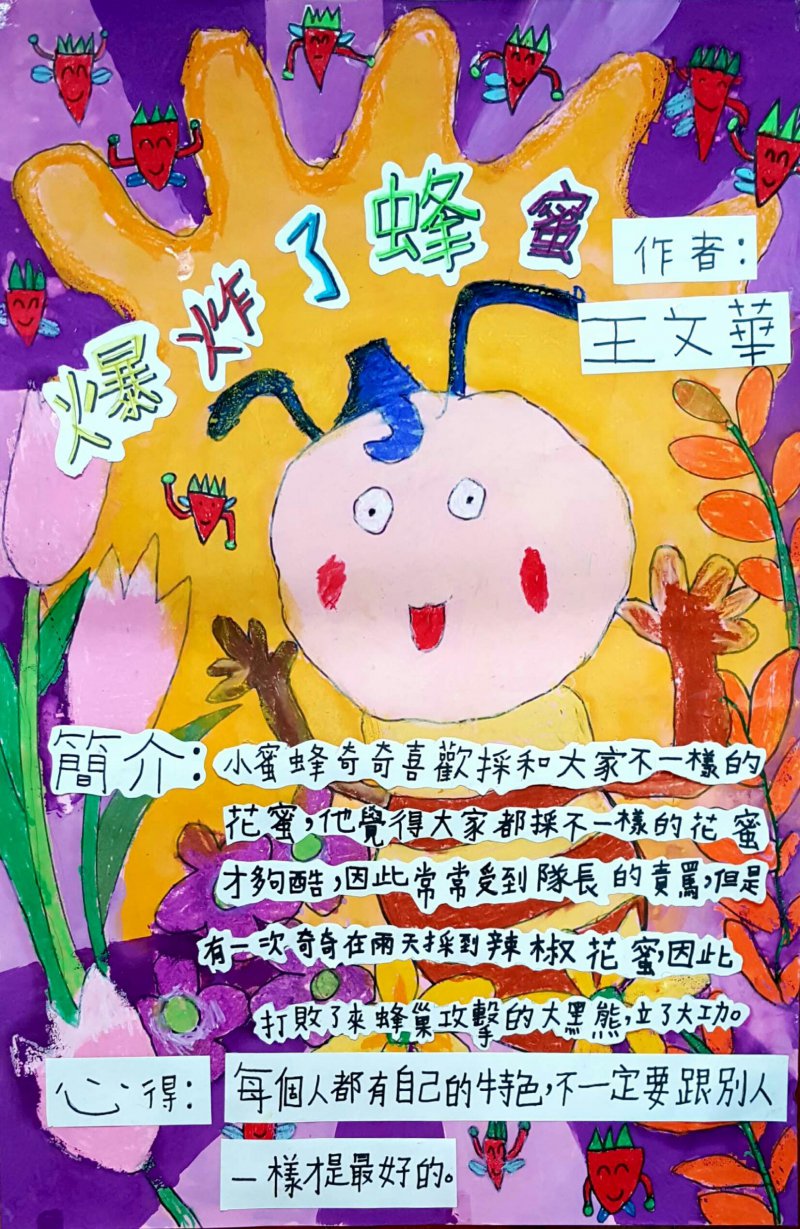 爆炸了蜂蜜
作者：
王文華
簡介：小蜜蜂奇奇喜歡採和大家不一樣的
花蜜，他覺得大家都採不一樣的花蜜
才夠酷，因此常常受到隊長的責罵，但是
有一次奇奇在兩天採到辣椒花蜜，因此
打敗了來蜂巢攻擊的大黑熊，立了大功。
心得：每個人都有自己的特色，不一定要跟別人
一樣才是最好的。